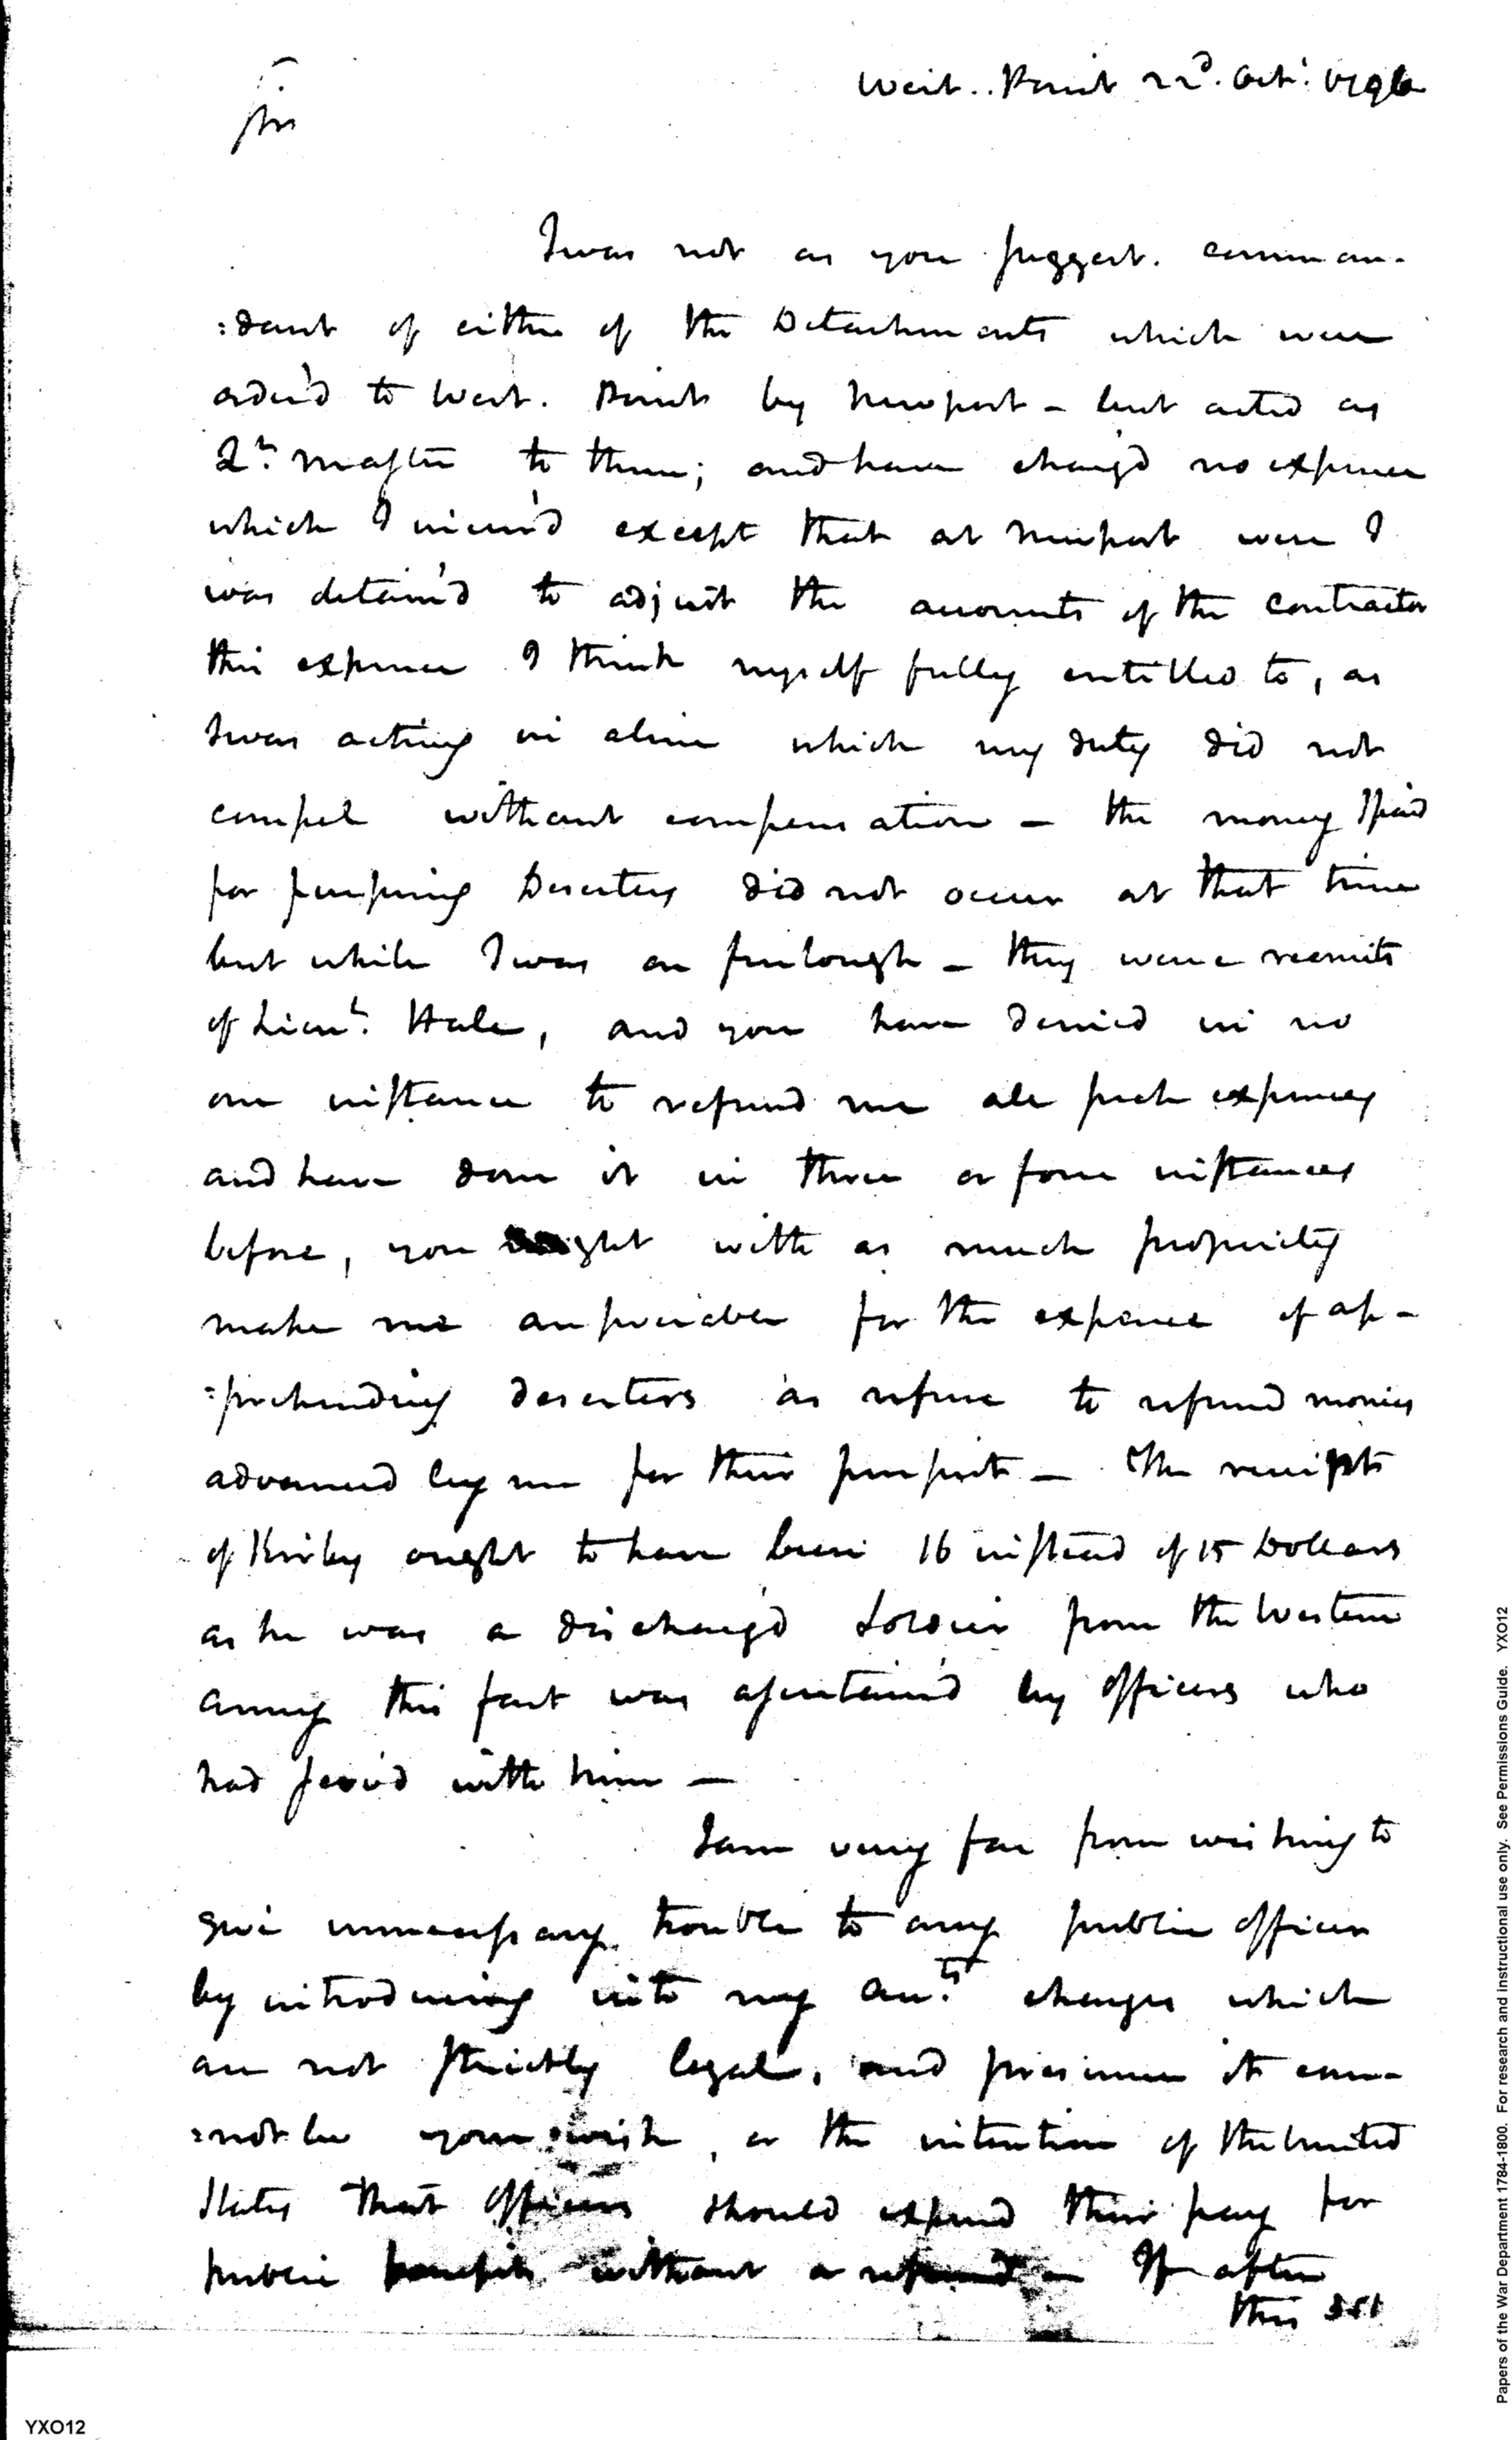 West..Point 22d. Oct: 1796
Sir
I was not as you suggest. comman-
:dant of either of the Detachments which were
order'd to West. Point by Newport - but acted as
Qr. Master to them; and have charg'd no expence
which I incurr'd except that at Newport were I
was detain'd to adjust the accounts of the contractor
this expence I think myself fully entitled to, as
I was acting in a line which my duty did not
compel without compensation - the money I paid
for pursuing Deserters did not occur at that time
but while I was on furlough - they were recruits
of Lieut. Hale, and you have denied in no
one instance to refund me all such expences
and have done it in three or four instances
before, you might with as much propriety
make me answerable for the expence of ap-
:prehending deserters as refuse to refund monies
advanced by me for their pursuit - The receipts
of Kirby ought to have been 16 instead of 15 Dollars
as he was a discharg'd Soldier from the Western
army this fact was assertain'd by officers who
had serv'd with him -
I am very far from wishing to
give unnecessary trouble to any public officer
by introducing into my accts. charges which
are not strictly legal, and presume it can-
:not be your wish, or the intention of the United
States that officers should expend their pay for
public benefit without a refund - If after
this 351
Papers of the War Department 1784-1800. For research and instructional use only. See Permissions Guide. YXO12
YXO12